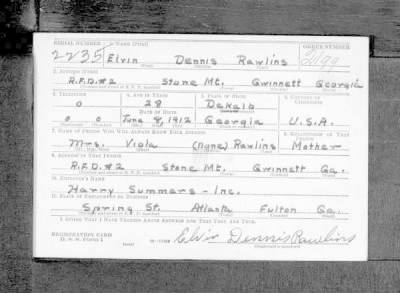 SERIAL NUMBER 1. NAME (Print) ORDER NUMBER
2235 Elvin Dennis Rawlins 2199
2. ADDRESS (Print)
R.F.D.#2 Stone Mt. Gwinnett Georgia
3. TELEPHONE 4. AGE IN YEARS 5. PLACE OF BIRTH 6. COUNTRY OF CITIZENSHIP
0 28 Dekalb
DATE OF BIRTH
0 0 June 8, 1912 Georgia U.S.A.
7. NAME OF PERSON WHO WILL ALWAYS KNOW YOUR ADDRESS 8. RELATIONSHIP OF THAT PERSON
Mrs. Viola (none) Rawlins Mother
9. ADDRESS OF THAT PERSON
R.F.D.#2 Stone Mt. Gwinnett Ga.
10. EMPLOYER'S NAME
Harry Summers - Inc.
11. PLACE OF EMPLOYMENT OR BUSINESS
Spring St. Atlanta Fulton Ga.
I AFFIRM THAT I HAVE VERIFIED ABOVE ANSWERS AND THAT THEY ARE TRUE.
REGISTRATION CARD
D.S.S. Form 1 Elvin Dennis Rawlins